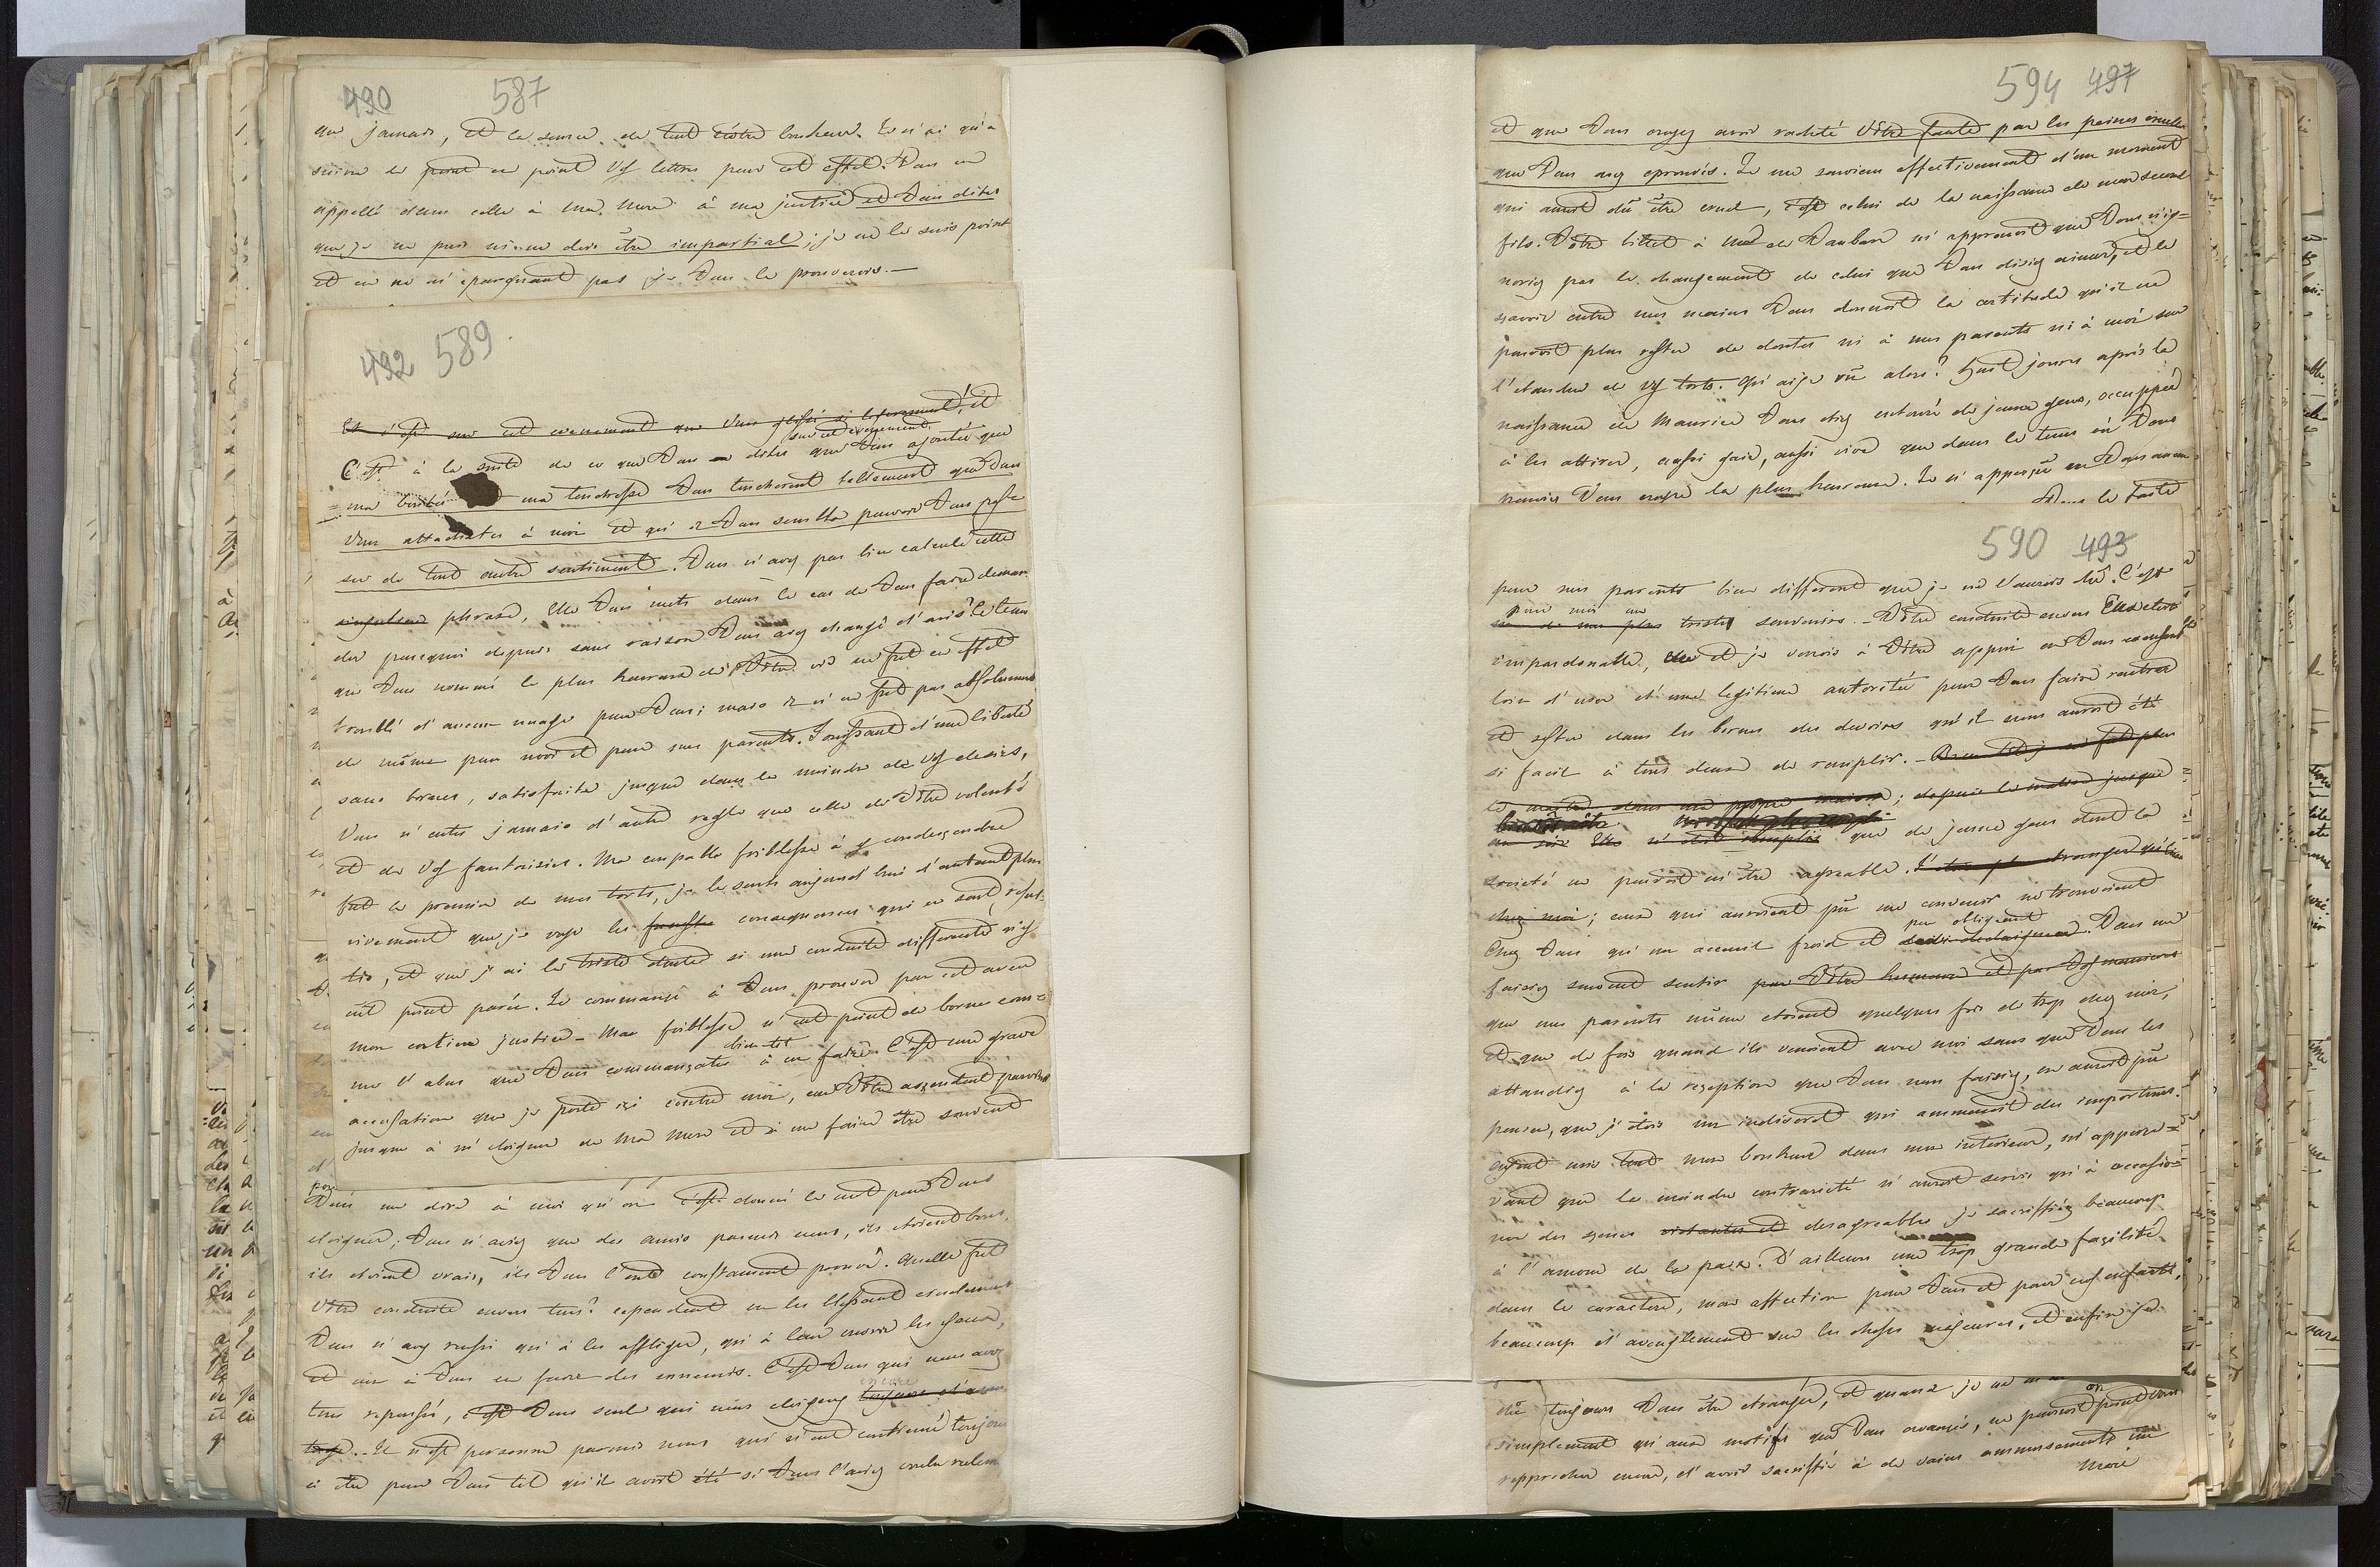 490 587
que jamais, et la source de tout vôtre bonheur. Je n'ai qu'a
suivre de point en point Vos lettres pour cet effet. Vous en
appellé dans celle à ma Mere à ma justice et Vous dites
que je ne puis ni ne dois être impartial; je ne le suis point
et en ne m'epargnant pas je Vous le prouverois.—
492 589.
Et c'est sur cet evenement que Vous glissés si legerement, et
sur cet evenement
C'est à la suite de ce que Vous en dites que Vous ajoutés que
= ma bonté et ma tendresse Vous toucherent tellement que Vous
Vous attachates à moi et qu'il Vous sembla pouvoir Vous pas=
ser de tout autre sentiment. Vous n'avez pas bien calculé cette
singuliere phrase, elle Vous mets dans le cas de Vous faire deman
der pourquoi depuis sans raison Vous avez changé d'avis? Le tems
que Vous nommé le plus heureux de Vôtre vie ne fut en effet
troublé d'aucun nuage pour Vous; mais il n'en fut pas absolument
de même pour moi et pour mes parents. Jouissant d'une liberté
sans bornes, satisfaite jusque dans le moindre de Vos desirs,
Vous n'eutes jamais d'autre regle que celle de Vôtre volonté
et de Vos fantaisies. Ma coupable foiblesse à y condesçendre
fut le premier de mes torts, je le sents aujourd'hui d'autant plus
vivement que je voye les funestes consequences qui en sont resul=
tés, et que j'ai le triste doute si une conduite differente n'y
eut point parée. Je commence à Vous prouver par cet aveu
mon entiere justice — Ma foiblesse n'eut point de bornes com=
bientot
me l'abus que Vous commençates à en faire. C'est une grave
accusation que je porte içi contre moi, car Vôtre asçendant parvint
jusque à m'eloigner de ma Mere et à me faire être souvent
pour
Vous me dire à moi qu'on s'est donné le mot pour Vous
eloigner; Vous n'aviez que des amis parmis nous, ils etoient bons,
ils etoient vrais, ils Vous l'ont constament prouvé. Quelle fut
Vôtre conduite envers tous? cependant en les blessant cruelement
Vous n'avez reussi qu'à les affliger, qu'à leur ouvrir les yeux,
et non à Vous en faire des ennemis. C'est Vous qui nous avez
encore
tous repoussés, c'est Vous seule qui nous eloignez toujours d'avan
tage. Il n'est personne parmis nous qui n'eut continué toujours
à être pour Vous tel qu'il avoit été si Vous l'aviez voulu
594 497
et que Vous croyez avoir racheté Vôtre faute par les peines cruelles
que Vous avez eprouvés. Je me souviens effectivement d'un moment
qui auroit dû être cruel, c'est celui de la naissance de mon second
fils. Vôtre billet à Mad de Vauban m'apprenoit que Vous n'ig=
noriez pas le changement de celui que Vous disiez aimer, et le
sçavoir entre mes mains Vous donnoit la certitude qu'il ne
pouvoit plus rester de doutes ni à mes parents ni à moi sur
l'etendue de Vos torts. Qu'ai je vû alors? Huit jours après la
naissance de Maurice Vous etiez entourée de jeunes gens, occuppée
à les attirer, aussi gaie, aussi vive que dans le tems où Vous
Vous croye la plus heureuse. Je n'apperçus en Vous aucun
Vous le faite
590 493
pour mes parents bien different que je ne l'aurois dû. C'est
pour moi un
un de mes plus tristes souvenirs. – Vôtre conduite envers Eux etoit
impardonable, et je venois à Vôtre appui en Vous excusant
loin d'user d'une legitime autorité pour Vous faire rentrer
et rester dans les bornes des devoirs qu'il nous auroit été
si facil à tous deux de remplir. – Bientot je ne fut plus
le maitre dans ma propre maison; depuis le matin jusque
au soir Elle n'etoit remplie que de jeunes gens dont la
societé ne pouvoit m'être agreable. J'etois plus etranger qu'eux
chez moi; ceux qui auroient pû me convenir ne trouvoient
peu obligeant
Chez Vous qu'un acceuil froid et dedaigneux. Vous me
faisiez souvent sentir par Vôtre humeur et par Vos manieres
que mes parents même etoient quelques fois de trop chez moi,
et que de fois quand ils venoient avec moi sans que Vous les
attandiez à la reception que Vous nous faisiez, on auroit pû
penser, que j'étois un indiscret qui ammenoit des importuns.
ayant mis tout mon bonheur dans mon interieur, m'apperçe=
vant que la moindre contrarieté n'auroit servis qu'à occasio=
ner des sçenes desagreables je sacrifiez beaucoup
à l'amour de la paix. D'ailleurs une trop grande façilité
dans le caractere, mon affection pour Vous et pour mes enfants,
beaucoup d'aveuglement sur les choses majeures, et enfin
dû toujours Vous être etranger, et quand je ne
simplement qu'aux motifs que Vous avancés, on pouroit
rapprocher encore, d'avoir sacrifié à de vains ammusements un
Mari